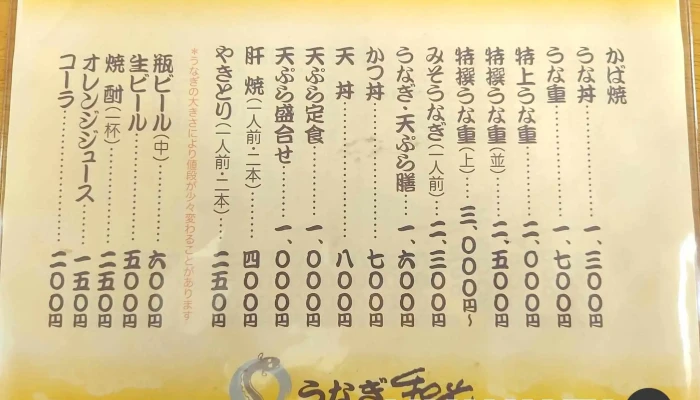 かば焼
うな丼…………一、三〇〇円
うな重…………一、七〇〇円
特上うな重………二、〇〇〇円
特撰うな重（並）……二、五〇〇円
特撰うな重（上）…三、〇〇〇円〜
みそうなぎ（一人前）…二、三〇〇円
うなぎ・天ぷら膳…一、六〇〇円
かつ丼…………七〇〇円
天丼…………八〇〇円
天ぷら定食………一、〇〇〇円
天ぷら盛合せ………一、〇〇〇円
肝焼（一人前・二本）……四〇〇円
やきとり（一人前・二本）…二五〇円
＊うなぎの大きさにより値段が少々変わることがあります
瓶ビール（中）………六〇〇円
生ビール…………五〇〇円
焼酎（一杯）…………二五〇円
オレンジジュース……一五〇円
コーラ……………二〇〇円
うなぎ